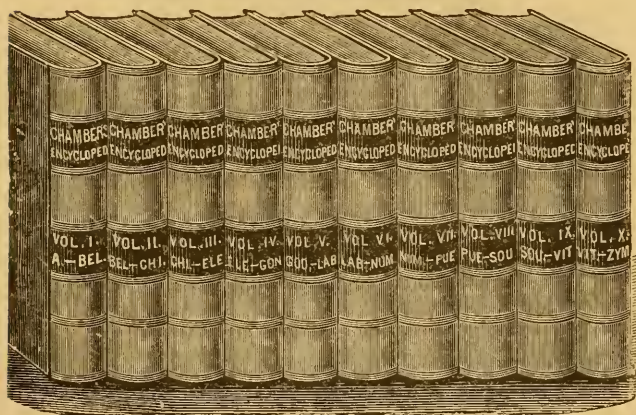 CHAMBERS
ENCYCLOPED
VOL. I.
A.–BEL.
CHAMBER'
ENCYCLOPED
VOL. II.
BEL–CHI.
CHAMBER'
ENCYCLOPED
VOL. III.
CHI–ELE
CHAMBER'
ENCYCLOPED
VOL. IV.
ELE–GON
CHAMBER'
ENCYCLOPED
VOL. V.
GOO.–LAB
CHAMBER'
ENCYCLOPED
VOL. VI.
LAB–NUM.
CHAMBER'
ENCYCLOPED
VOL. VII.
NUM–PUE
CHAMBER'
ENCYCLOPEI
VOL. VIII
PUE–SOU
CHAMBER'
ENCYCLOPEC
VOL. IX.
SOU–VIT
CHAMBE
ENCYCLOPE
VOL. X.
VIT–ZYM